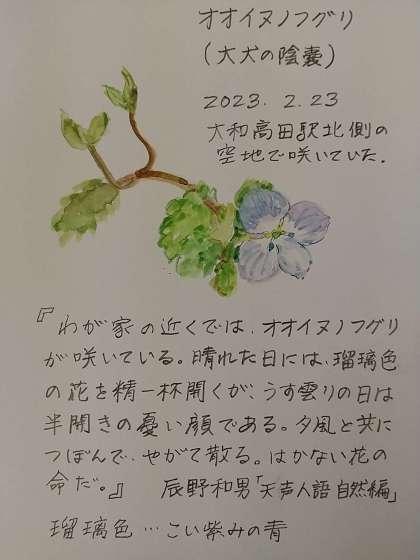 オオイヌノフグリ
(大犬の陰嚢)
2023. 2.23
大和高田駅北側の
空地で咲いていた.
『わが家の近くでは、オオイヌノフグリ
が咲いている。晴れた日には、瑠璃色
の花を精一杯開くが、うす雲りの日は
半開きの憂い顔である。夕風と共に
つぼんで、やがて散る。はかない花の
命だ。』 辰野和男「天声人語 自然編」
瑠璃色…こい紫みの青